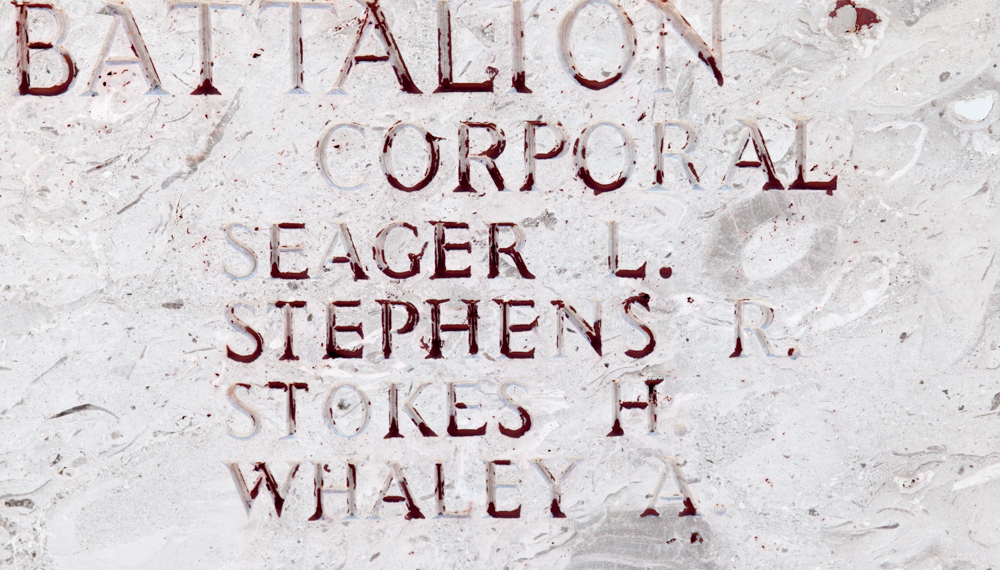 BATTALION
CORPORAL
SEAGER L.
STEPHENS R.
STOKES H.
WHALEY A.